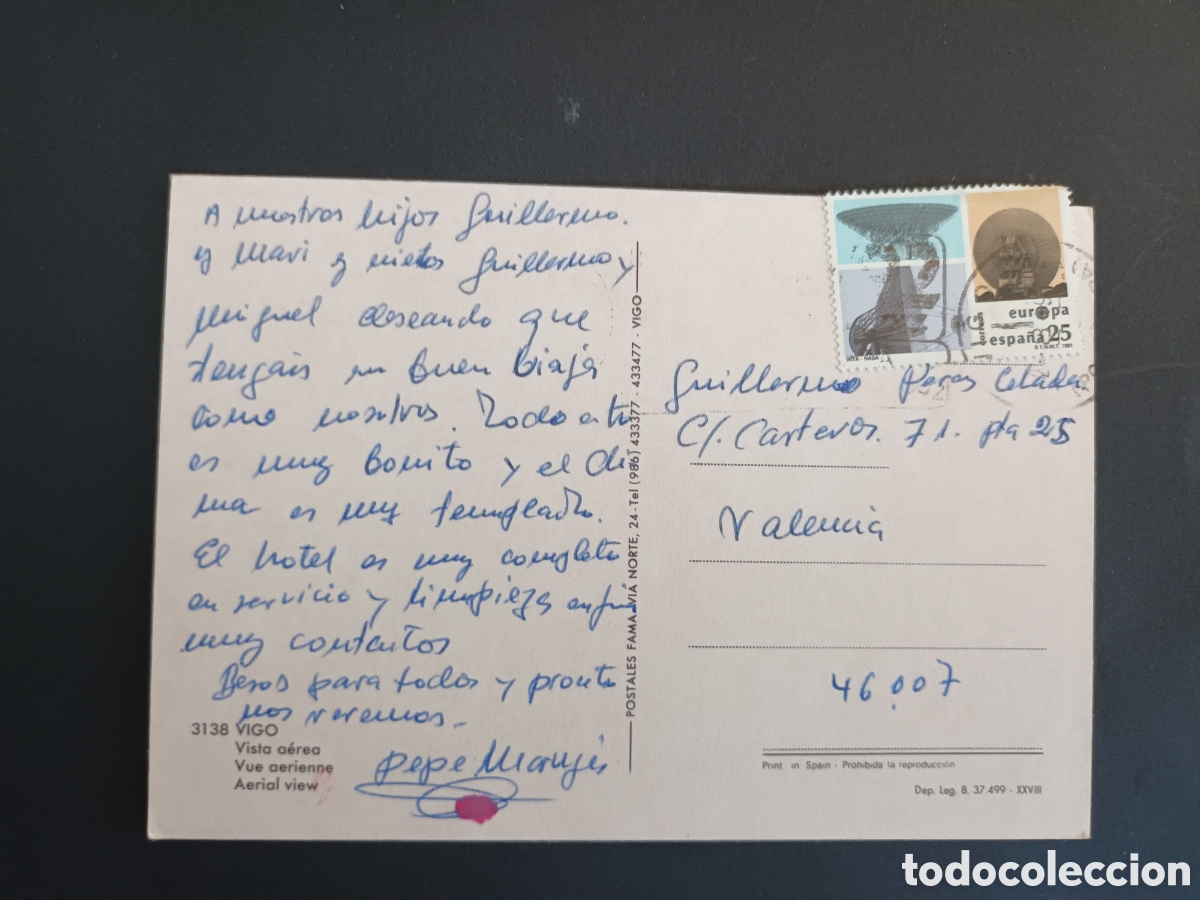 A nuestros hijos Guillermo.
y Mari y nietos Guillermo y
Miguel deseando que
tengais un buen Viaje
como nosotros. Todo esto
es muy Bonito y el cli
ma es muy templado.
El hotel es muy completo
en servicio y limpieza en fin
muy contentos
Besos para todos y pronto
nos veremos.-
Pepe Maruja
3138 VIGO
Vista aérea
Vue aerienne
Aerial view
POSTALES FAMA-VIA NORTE, 24-Tel (986) 433377 - 433477 - VIGO
NTA - NASA
correos
europa
españa 25
F.N.M.T. 1991
Guillermo Peres
C/. Carteros. 71. pta 25
Valencia
46.007
Print in Spain - Prohibida la reproducción
Dep. Leg. B. 37.499 - XXVIII
todocoleccion